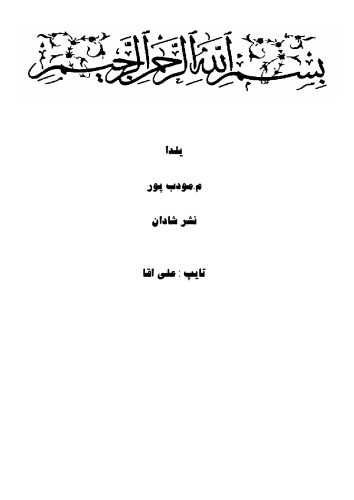 بسم الله الرحمن الرحیم
یلدا
م.مودب پور
نشر شادان
تایپ : علی اقا